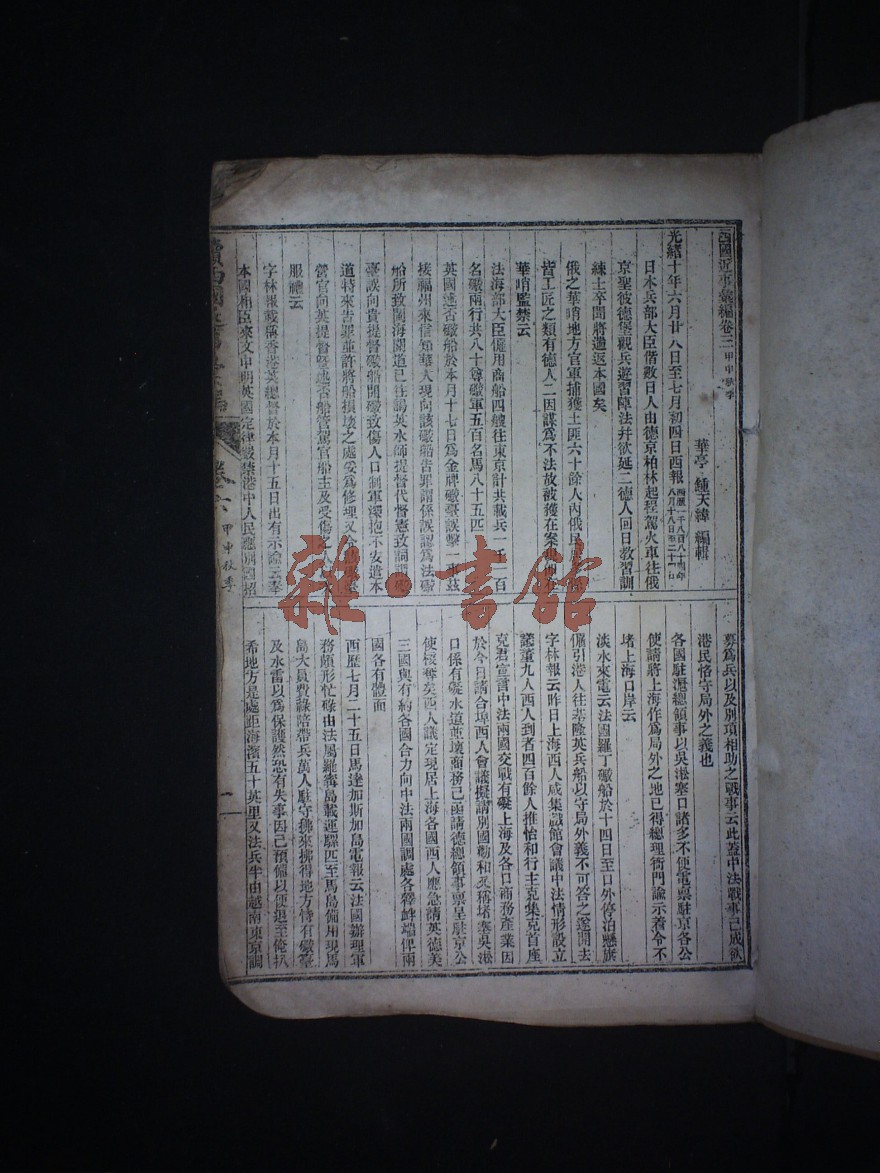 西國近事彙編卷三 甲申秋季
華亭 鍾天緯 編輯
光緒十年六月廿八日至七月初四日西報 西歷一千八百八十四年八月十八日至二十
日本兵部大臣偕數日人由德京柏林起程駕火車往俄
京聖彼德堡觀兵遊習陣法并欲延二德人回日教習訓
練士卒間將遄返本國矣
俄之華哨地方官軍捕獲土匪六十餘人內俄民
皆工匠之類有德人二因謀爲不法故被獲在案
華哨監禁云
法海部大臣僱用商船四艘往東京計共載兵一千 百
名礮兩行共八十尊礮軍五百名馬八十五匹
英國述否礮船於本月十七日爲金牌礮臺誤擊一事茲
接福州來信知華人現向該礮船告罪謂係誤認爲法礮
船所致閩海關道已往謁英水師提督代督憲致詞謂礮
臺誤向貴提督礮船開礮致傷人口制軍深抱不安遣本
道特來告罪並許將船損壞之處妥爲修理又令
營官向英提督暨述否船管駕官船主及受傷之
服禮云
字林報載稱香港英總督於本月十五日出有示諭云奉
本國相臣來文申明英國定律嚴禁港中人民應別國招
募爲兵以及別項相助之戰事云此蓋中法戰事已成欲
港民恪守局外之義也
各國駐滬總領事以吳淞塞口諸多不便電禀駐京各公
使請將上海作爲局外之地已得總理衙門諭示着令不
堵上海口岸云
淡水來電云法國羅丁礮船於十四日至口外停泊懸旗
僱引港人往基隆英兵船以守局外義不可答之遂開去
字林報云昨日上海西人咸集戲館會議中法情形設立
議董九人西人到者四百餘人推怡和行主克集克首座
克君宣言中法兩國交戰有礙上海及各口商務產業因
於今日請合埠西人會議擬請別國勸和又稱堵塞吳淞
口係有礙水道並壞商務已函請德總領事禀呈駐京公
使核奪矣西人議定現居上海各國西人應急請英德美
三國與有約各國合力向中法兩國調處各釋衅端俾兩
國各有體面
西歷七月二十五日馬達加斯加島電報云法國辦理軍
務頗形忙碌由法屬羅 島載運騾匹至馬島備用現馬
島大員費祿陪帶兵萬人駐守挪來挪得地方恃有礮臺
及水雷以爲保護然恐有失事因已預備以便退至俺扒
希地方是處距海濱五十英里又法兵半由越南東京調
卷六 甲申秋季
二
雜·書館